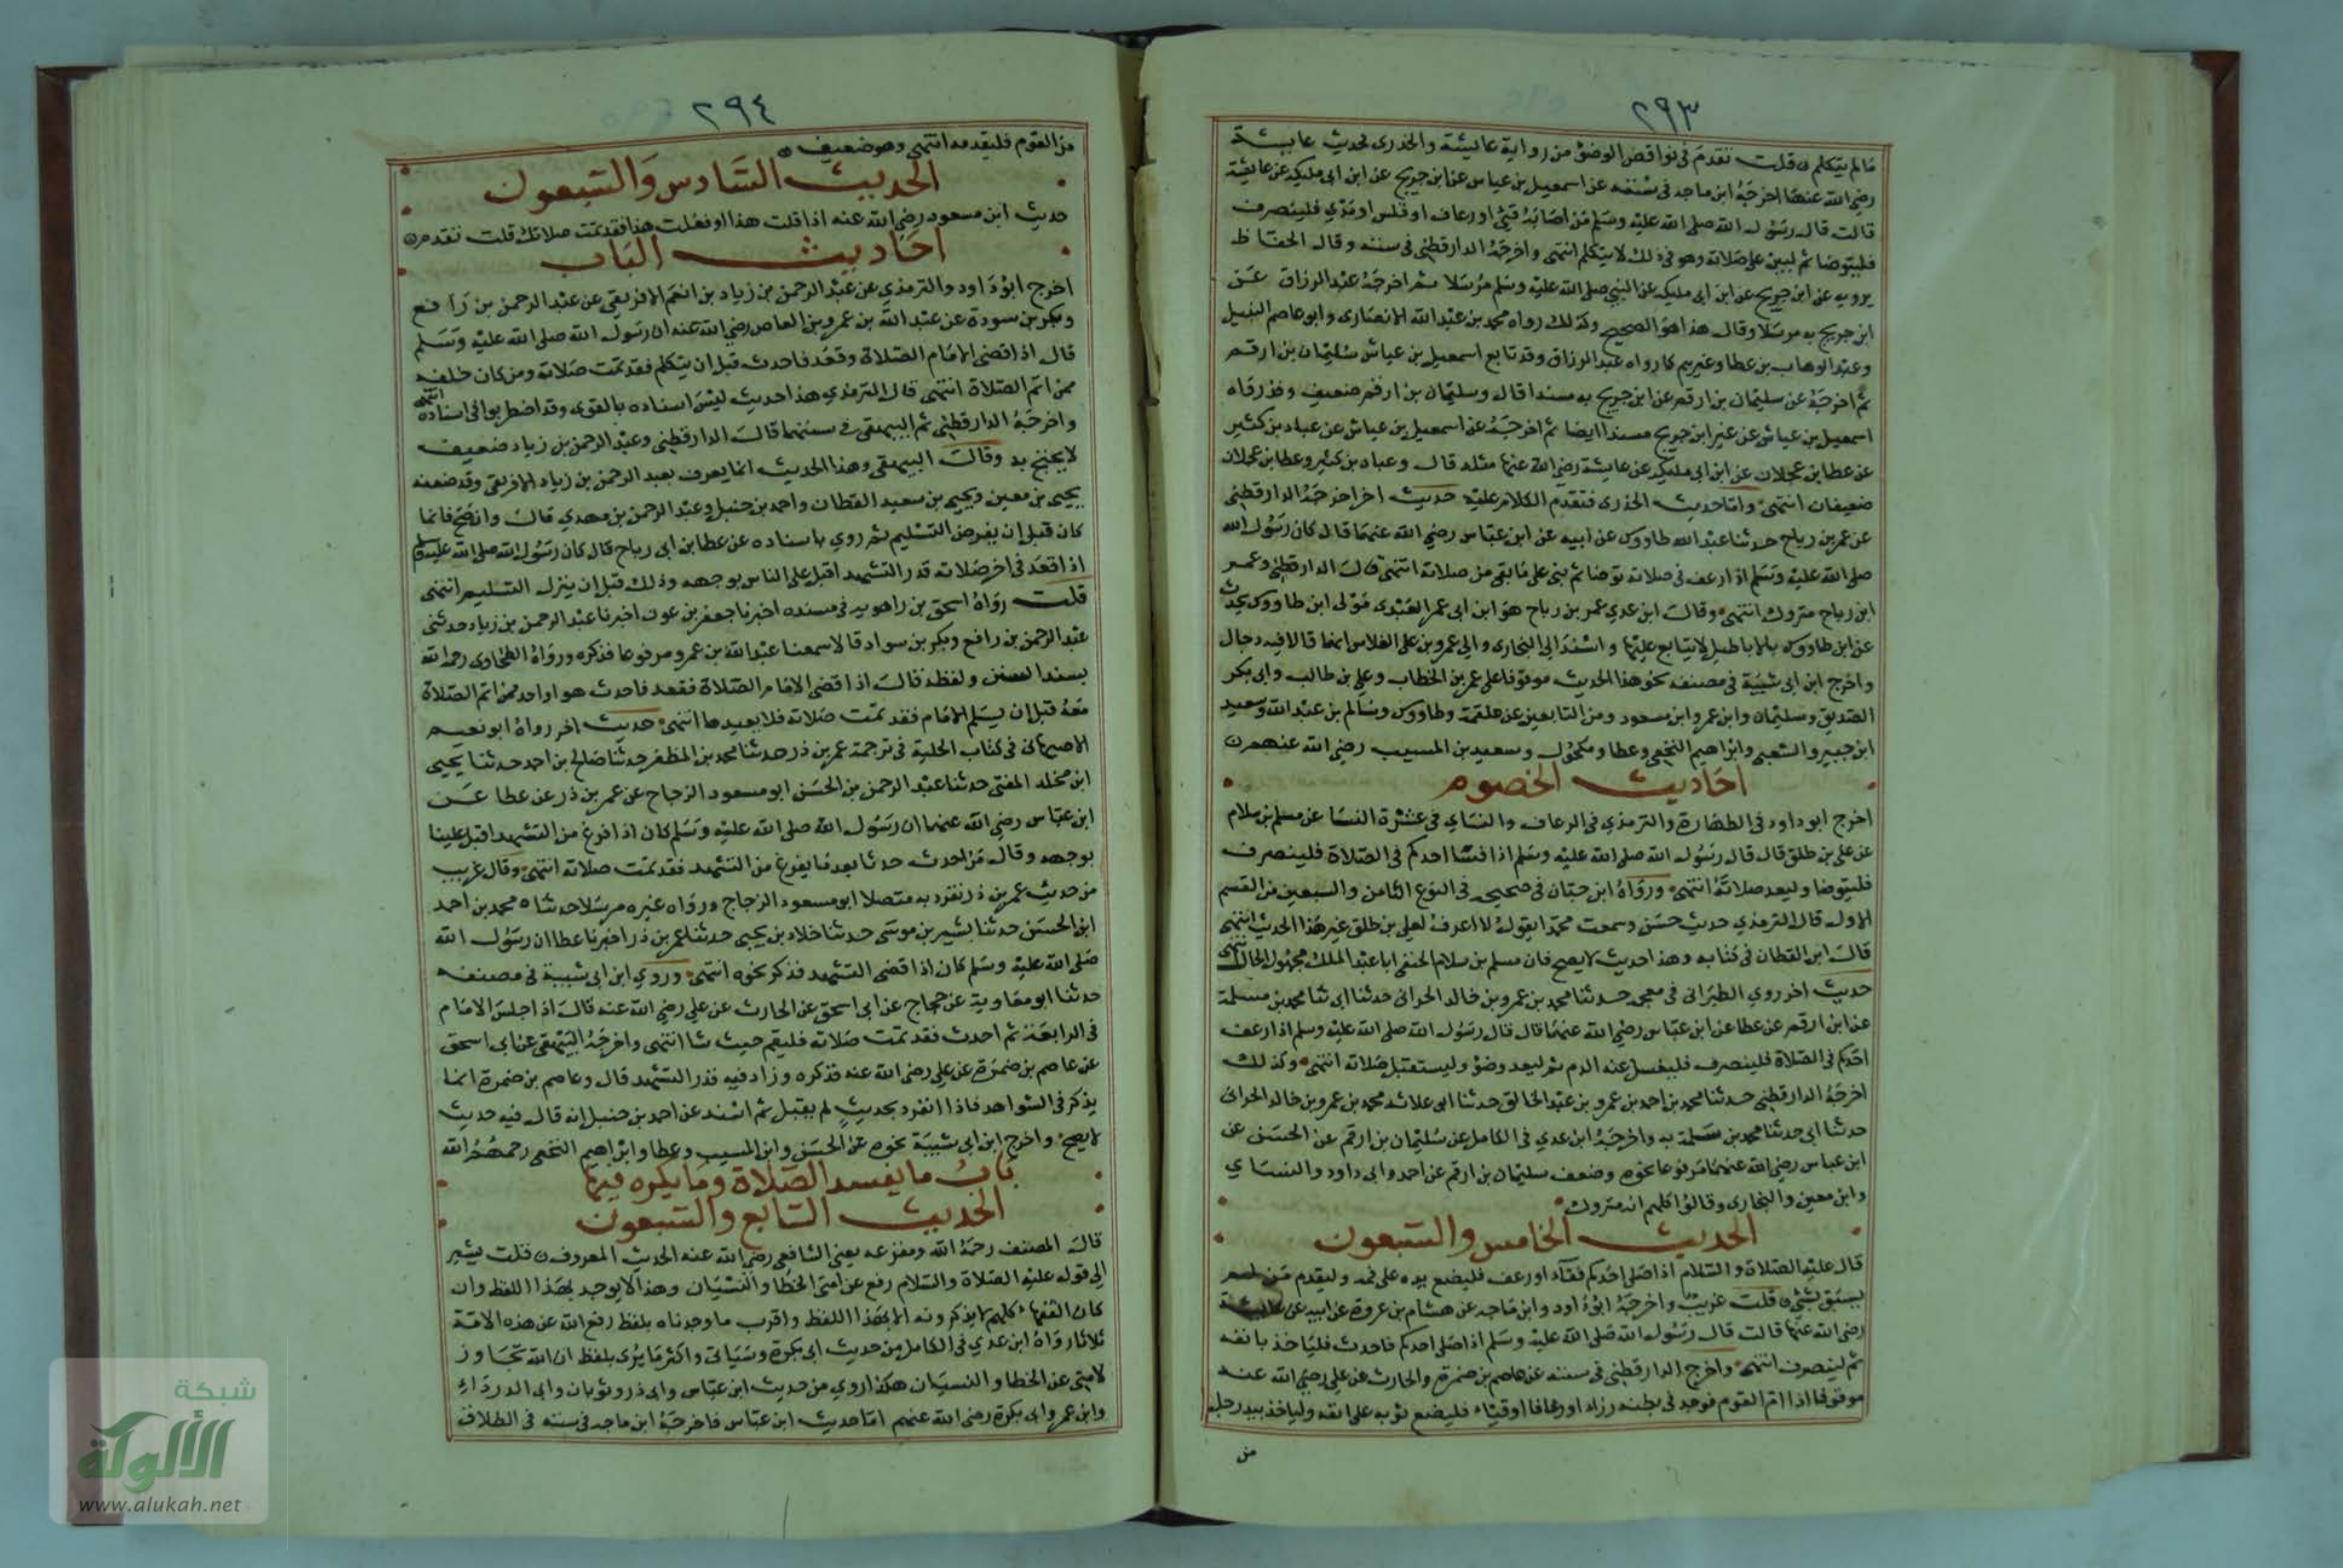 ٢٩٣
مالم يتكلم ن قلت تقدم في نواقض الوضؤ من رواية عايشة والخدرى لحديث عايشة
رضي الله عنها اخرجه ابن ماجه في سننه عن اسمعيل بن عياس عن ابن جريج عن ابن ابى مليكه عن عايشة
قالت قال رسول الله صلى الله عليه وسلم من اصابه قيئ او رعاف او قلس او مذي فلينصرف
فليتوضا ثم ليبن على صلاته وهو في ذلك لا يتكلم انتهى واخرجه الدارقطني في سننه وقال الحفاظ
يرويه عن ابن جريج عن ابن ابى مليكه عن النبي صلى الله عليه وسلم مرسلا ثم اخرجه عبد الرزاق عن
ابن جريج به مرسلا وقال هذا هو الصحيح وكذلك رواه محمد بن عبد الله الانصارى وابو عاصم النبيل
وعبد الوهاب بن عطا وغيرهم كما رواه عبد الرزاق وقد تابع اسمعيل بن عياش سليمان بن ارقم
ثم اخرجه عن سليمان بن ارقم عن ابن جريج به مسندا قال وسليمان بن ارقم ضعيف وقد رواه
اسمعيل بن عياش عن غير ابن جريج مسندا ايضا ثم اخرجه عن اسمعيل بن عياش عن عباد بن كثير
عن عطا بن عجلان عن ابن ابى مليكه عن عايشة رضي الله عنها مثله قال وعباد بن كثير وعطا بن عجلان
ضعيفان انتهى واما حديث الخدرى فتقدم الكلام عليه حديث اخر اخرجه الدارقطني
عن عمر بن رباح حدثنا عبد الله طاووس عن ابيه عن ابن عباس رضي الله عنهما قال كان رسول الله
صلى الله عليه وسلم اذا رعف في صلاته توضا ثم بنى على ما بقى من صلاته انتهى قال الدارقطني وعمر
ابن رباح متروك انتهى وقال ابن عدي عمر بن رباح هو ابن ابى عمر العبدى مولى ابن طاووس يحدث
عن ابن طاووس بالاباطيل لا يتابع عليها واسند الى البخارى والى عمرو بن على الفلاس انهما قالا فيه دجال
واخرج ابن ابى شيبة في مصنفه نحو هذا الحديث موقوفا على عمر بن الخطاب وعلى بن طالب وابى بكر
الصديق وسليمان وابن عمر وابن مسعود ومن التابعين عن علقمة وطاووس وسالم بن عبد الله وسعيد
ابن جبير والشعبى وابراهيم النخعى وعطا ومكحول وسعيد بن المسيب رضي الله عنهم ن
احاديث الخصوم
اخرج ابو داود في الطهارة والترمذي في الرعاف والنساي في عشرة النسا عن مسلم بن سلام
عن على بن طلق قال قال رسول الله صلى الله عليه وسلم اذا فسا احدكم في الصلاة فلينصرف
فليتوضا وليعد صلاته انتهى ورواه ابن حبان في صحيحه في النوع الثامن والسبعين من القسم
الاول قال الترمذي حديث حسن وسمعت محمدا يقول لا اعرف لعلى بن طلق غير هذا الحديث انتهى
قال ابن القطان في كتابه وهذا حديث لا يصح فان مسلم بن سلام الحنفى ابا عبد الملك مجهول الحال انتهى
حديث اخر روي الطبرانى في معجمه حدثنا محمد بن عمرو بن خالد الحرانى حدثنا ابى ثنا محمد بن مسلمة
عن ابن ارقم عن عطا عن ابن عباس رضي الله عنهما قال قال رسول الله صلى الله عليه وسلم اذا رعف
احدكم في الصلاة فلينصرف فليغسل عنه الدم ثم ليعد وضؤ وليستقبل صلاته انتهى وكذلك
اخرجه الدارقطني حدثنا محمد بن احمد بن عمرو بن عبد الخالق حدثنا ابى علاثه محمد بن عمرو بن خالد الحرانى
حدثنا ابى حدثنا محمد بن سلمة به واخرجه ابن عدي في الكامل عن سليمان بن ارقم عن الحسن عن
ابن عباس رضي الله عنهما مرفوعا نحوه وضعف سليمان بن ارقم عن احمد وابى داود والنساي
وابن معين والبخارى وقالوا كلهم انه متروك
الحديث الخامس والسبعون
قال عليه الصلاة والسلام اذا صلى احدكم فقاء او رعف فليضع يده على فمه وليقدم من لم
يسبق بشئ ن قلت غريب واخرجه ابو داود وابن ماجه عن هشام بن عروة عن ابيه عن عايشة
رضي الله عنها قالت قال رسول الله صلى الله عليه وسلم اذا صلى احدكم فاحدث فلياخذ بانفه
ثم لينصرف انتهى واخرج الدارقطني في سننه عن عاصم بن ضمرة والحارث عن علي رضي الله عنه
موقوفا اذا ام القوم فوجد في بطنه رزاء او رعافا او قيئاء فليضع ثوبه على انفه ولياخذ بيد رجل
من
٢٩٤
من القوم فليقدمه انتهى وهو ضعيف ن
الحديث السادس والسبعون
حديث ابن مسعود رضي الله عنه اذا قلت هذا او فعلت هذا فقد تمت صلاتك قلت تقدم ن
احاديث الباب
اخرج ابو داود والترمذي عن عبد الرحمن بن زياد بن انعم الافريقى عن عبد الرحمن بن رافع
وبكر بن سودة عن عبد الله بن عمرو بن العاص رضي الله عنه ان رسول الله صلى الله عليه وسلم
قال اذا قضى الامام الصلاة وقعد فاحدث قبل ان يتكلم فقد تمت صلاته ومن كان خلفه
ممن اتم الصلاة انتهى قال الترمذي هذا حديث ليس اسناده بالقوى وقد اضطربوا في اسناده انتهى
واخرجه الدارقطني ثم البيهقى في سننهما قال الدارقطني وعبد الرحمن بن زياد ضعيف
لا يحتج به وقال البيهقى وهذا الحديث انما يعرف بعبد الرحمن بن زياد الافريقى وقد ضعفه
يحيى بن معين ويحيى بن سعيد القطان واحمد بن حنبل وعبد الرحمن بن مهدي قال وان صح فانما
كان قبل ان يفرض التسليم ثم روي باسناده عن عطا بن ابى رباح قال كان رسول الله صلى الله عليه وسلم
اذا قعد في اخر صلاته قدر التشهد اقبل على الناس بوجهه وذلك قبل ان ينزل التسليم انتهى
قلت رواه اسحق بن راهويه في مسنده اخبرنا جعفر بن عون اخبرنا عبد الرحمن بن زياد حدثنى
عبد الرحمن بن رافع وبكر بن سواد قالا سمعنا عبد الله بن عمرو مرفوعا فذكره ورواه الطحاوى رحمه الله
بسند السنن ولفظه قال اذا قضى الامام الصلاة فقعد فاحدث هو او احد ممن اتم الصلاة
معه قبل ان يسلم الامام فقد تمت صلاته فلا يعيدها انتهى حديث اخر رواه ابو نعيم
الاصبهانى في كتاب الحلية في ترجمة عمر بن ذر حدثنا محمد بن المظفر حدثنا صالح بن احمد حدثنا يحيى
ابن مخلد المفتى حدثنا عبد الرحمن بن الحسن ابو مسعود الزجاج عن عمر بن ذر عن عطا عن
ابن عباس رضي الله عنهما ان رسول الله صلى الله عليه وسلم كان اذا فرغ من التشهد اقبل علينا
بوجهه وقال من احدث حدثا بعد ما يفرغ من التشهد فقد تمت صلاته انتهى وقال غريب
من حديث عمر بن ذر تفرد به متصلا ابو مسعود الزجاج ورواه غيره مرسلا حدثناه محمد بن احمد
ابن الحسن حدثنا بشير بن موسى حدثنا خلاد بن يحيى حدثنا عمر بن ذر اخبرنا عطا ان رسول الله
صلى الله عليه وسلم كان اذا قضى التشهد فذكر نحوه انتهى وروي ابن ابى شيبة في مصنفه
حدثنا ابو معاوية عن حجاج عن ابى اسحق عن الحارث عن علي رضي الله عنه قال اذا جلس الامام
في الرابعة ثم احدث فقد تمت صلاته فليقم حيث شا انتهى واخرجه البيهقى عن ابى اسحق
عن عاصم بن ضمرة عن علي رضي الله عنه فذكره وزاد فيه قدر التشهد قال وعاصم بن ضمرة انما
يذكر في الشواهد فاذا انفرد بحديث لم يقبل ثم اسند عن احمد بن حنبل انه قال فيه حديث
لا يصح واخرج ابن ابى شيبة نحوه عن الحسن وابن المسيب وعطا وابراهيم النخعى رحمهم الله
باب ما يفسد الصلاة وما يكره فيها
الحديث السابع والسبعون
قال المصنف رحمه الله ومفزعه يعنى الشافعى رضي الله عنه الحديث المعروف ن قلت يشير
الى قوله عليه الصلاة والسلام رفع عن امتى الخطا والنسيان وهذا لا يوجد بهذا اللفظ وان
كان الفقهاء كلهم لا يذكرونه الا بهذا اللفظ واقرب ما وجدناه بلفظ رفع الله عن هذه الامة
ثلاثا رواه ابن عدي في الكامل من حديث ابى بكرة وسياتى واكثر ما يروى بلفظ ان الله تجاوز
لامتى عن الخطا والنسيان هكذا روي من حديث ابن عباس وابى ذر وثوبان وابى الدرداء
وابن عمر وابى بكرة رضي الله عنهم اما حديث ابن عباس فاخرجه ابن ماجه في سننه في الطلاق
شبكة
الألوكة
www.alukah.net